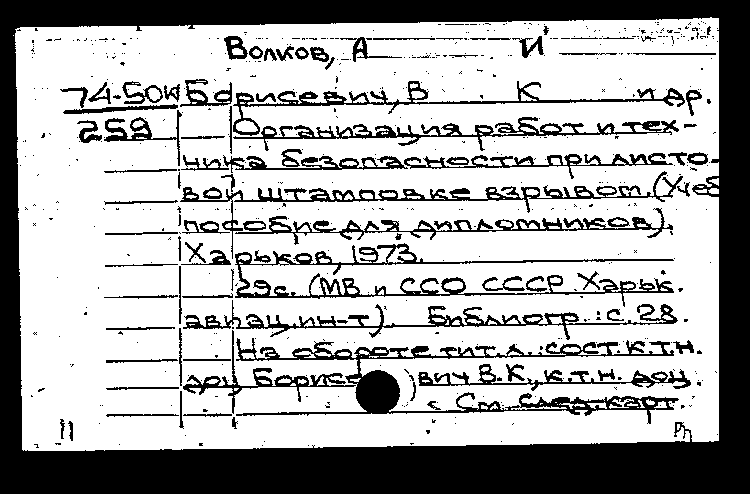 Волков, А И
74-50к Борисевич, В К и др.
259 Организация работ и тех-
ника безопасности при листо-
вой штамповке взрывом. (Учеб
пособие для дипломников).
Харьков, 1973.
29с. (МВ и ССО СССР Харьк.
авиац. ин-т). Библиогр.: с. 28.
На обороте тит. л.: сост. к.т.н.
доц Борисе вич В.К., к.т.н. доц.
См след. карт.
11